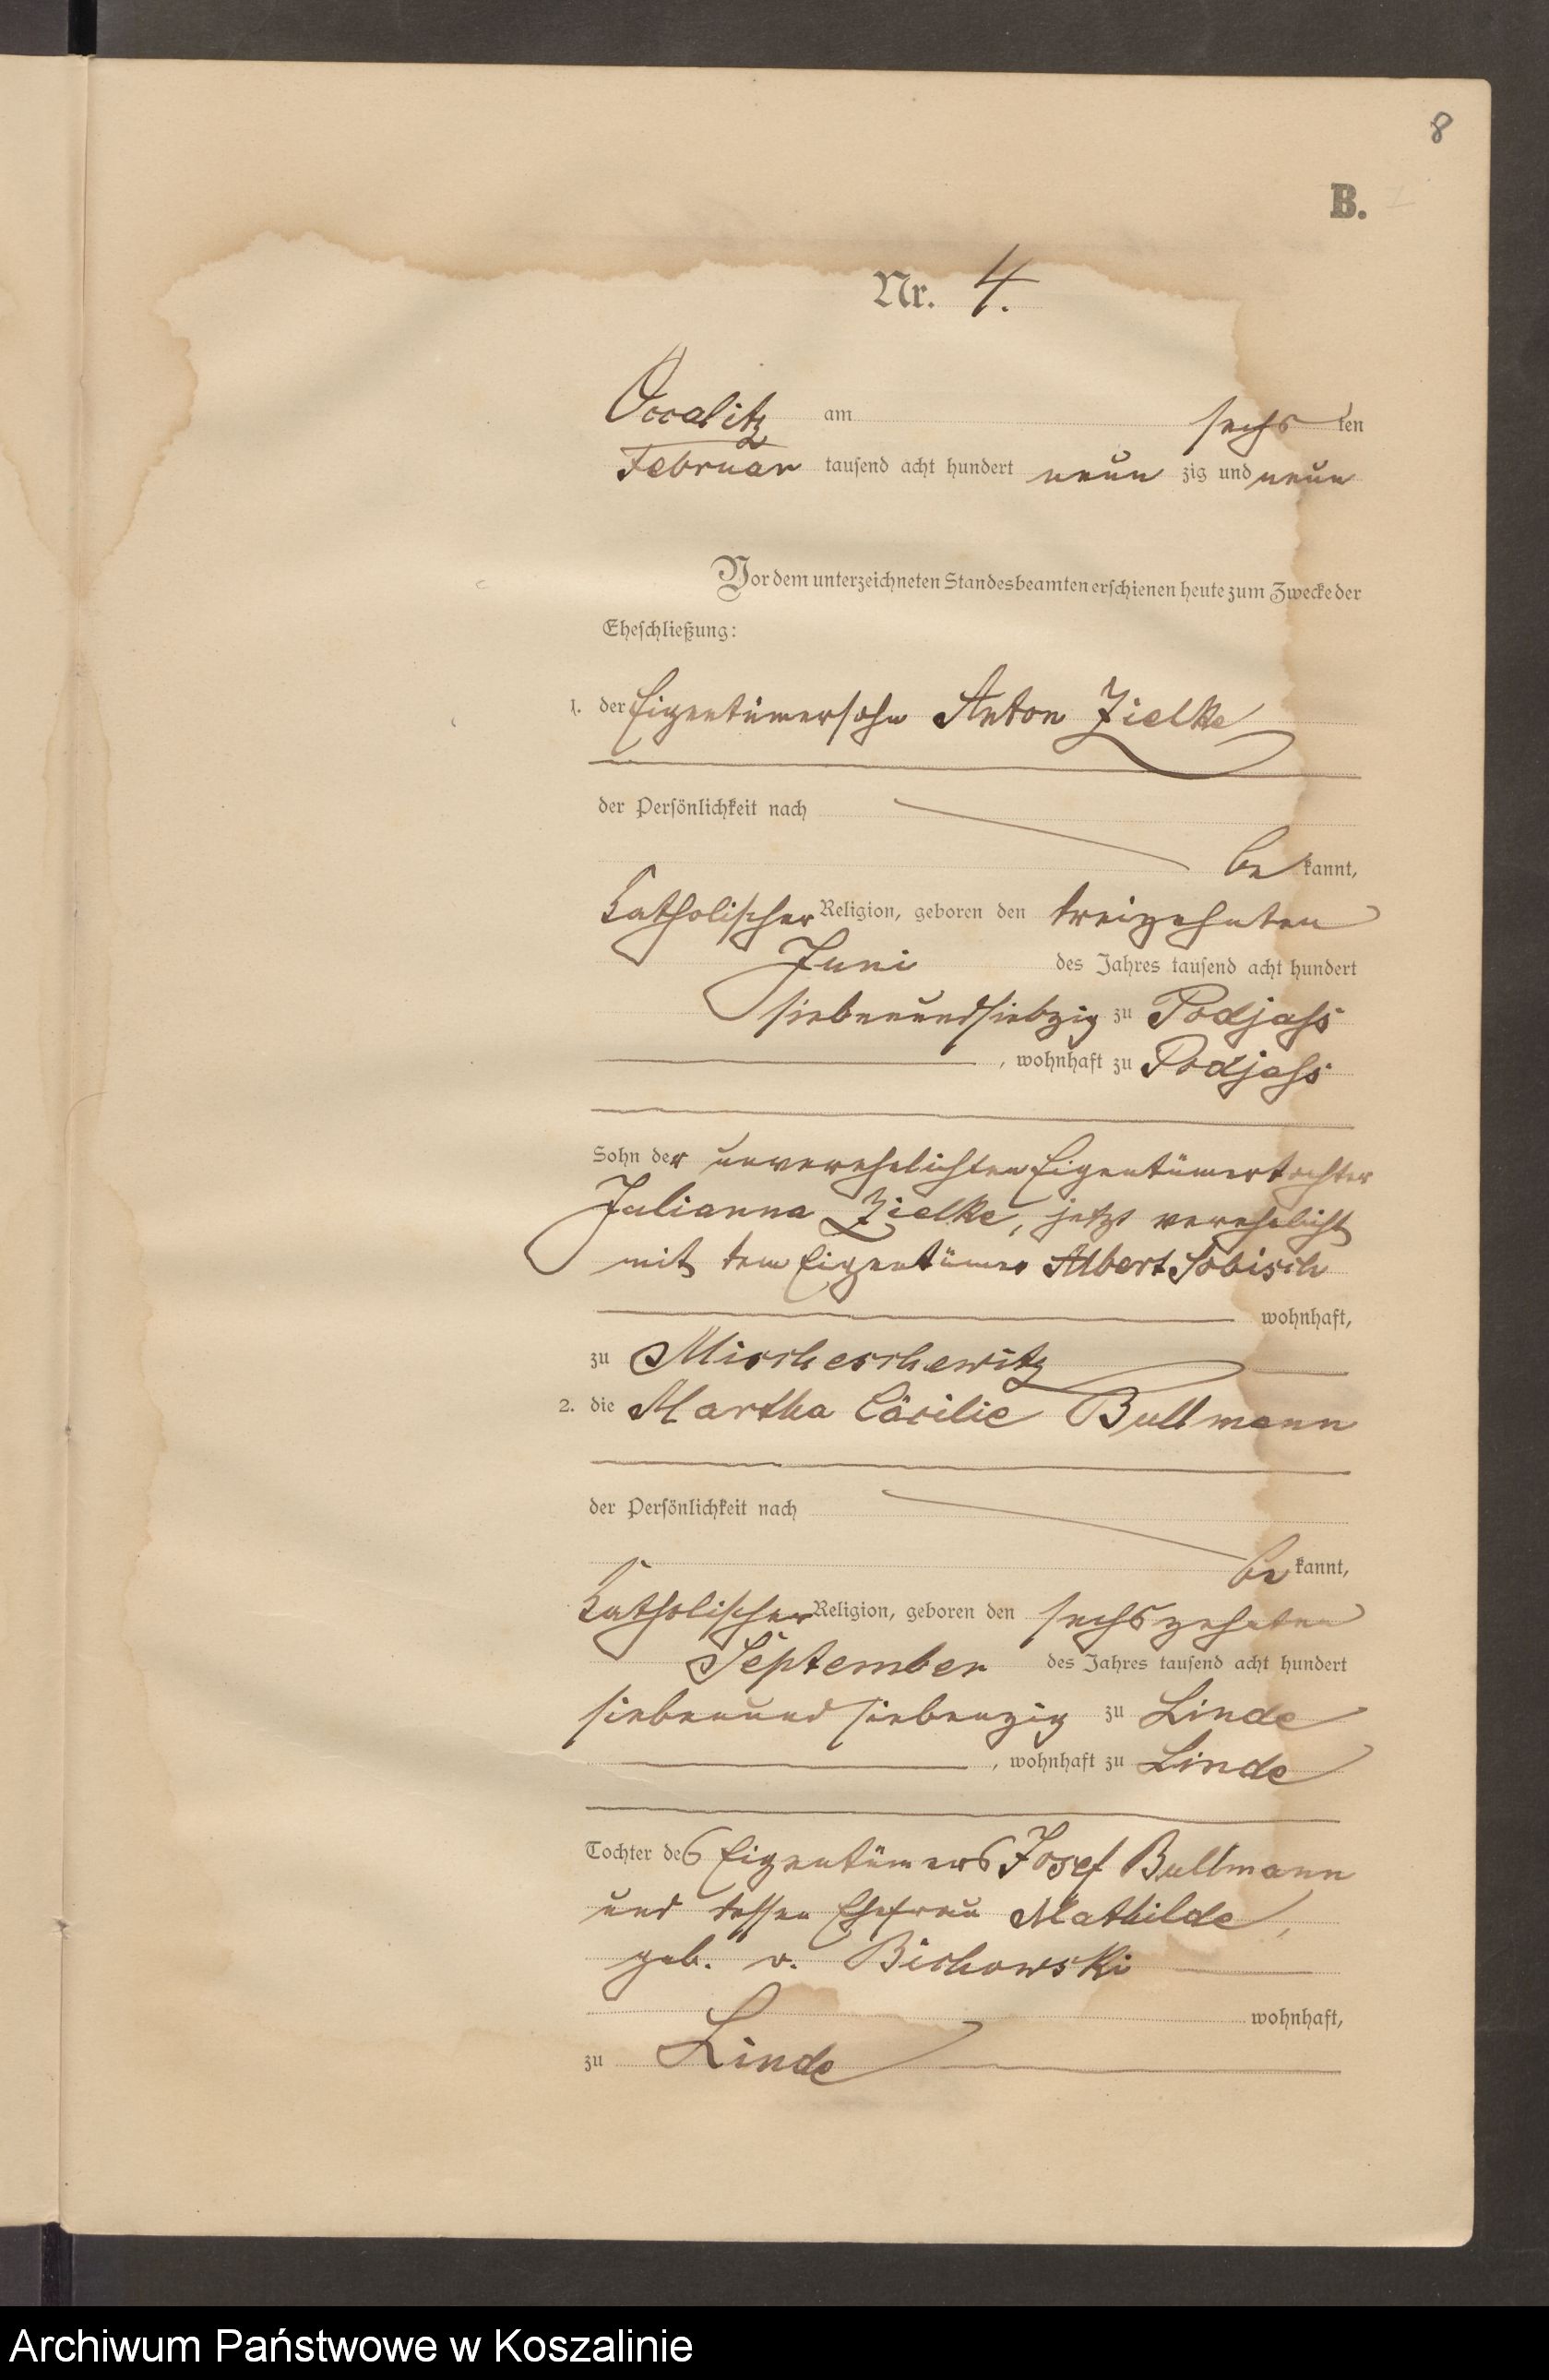 8
B.
Nr. 4.
Occalitz am sechs ten
Februar tausend acht hundert neun zig und neun
Vor dem unterzeichneten Standesbeamten erschienen heute zum Zwecke der
Eheschließung:
1. der Eigentümersohn Anton Zielke
der Persönlichkeit nach
be kannt,
katholischer Religion, geboren den dreizehnten
Juni des Jahres tausend acht hundert
siebenundsiebzig zu Podjass
, wohnhaft zu Podjass
Sohn der unverehelichten Eigentümertochter
Julianna Zielke, jetzt verehelicht
mit dem Eigentümer Albert Sobisch
wohnhaft,
zu Mischeschewitz
2. die Martha Cäcilie Bullmann
der Persönlichkeit nach
be kannt,
katholischer Religion, geboren den sechszehnten
September des Jahres tausend acht hundert
siebenundsiebenzig zu Linde
, wohnhaft zu Linde
Tochter des Eigentümers Josef Bullmann
und dessen Ehefrau Mathilde,
geb. v. Bichowski
wohnhaft,
zu Linde
Archiwum Państwowe w Koszalinie